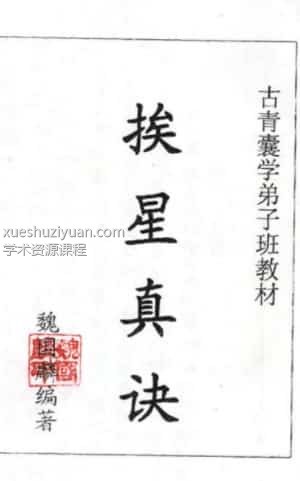 古青囊学弟子班教材
挨星真诀
xueshuziyuan.com
学术资源课程
魏国麟编著